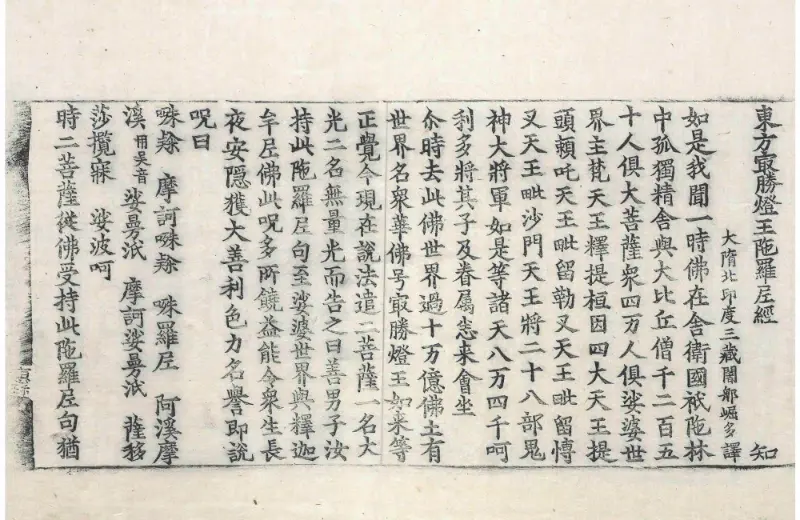 東方冣勝燈王陁羅尼經 知
大隋北印度三藏闍那崛多譯
如是我聞一時佛在舍衛國祇陁林
中孤獨精舍與大比丘僧千二百五
十人俱大菩薩衆四万人俱娑婆世
界主梵天王釋提桓因四大天王提
頭頼吒天王毗留勒叉天王毗留慱
叉天王毗沙門天王將二十八部鬼
神大將軍如是等諸天八万四千呵
利多將其子及眷属悉来會坐
尒時去此佛世界過十万億佛土有
世界名衆華佛号冣勝燈王如来等
正覺今現在說法遣二菩薩一名大
光二名無量光而告之曰善男子汝
持此陁羅尼句至娑婆世界與釋迦
牟尼佛此呪多所饒益能令衆生長
夜安隱獲大善利色力名譽即說
呪曰
㖒𨽻 摩訶㖒𨽻 㖒羅尼 阿溪摩
溪 冊吴音 娑曼泜 摩訶娑曼泜 薩移
莎攬寐 娑波呵
時二菩薩從佛受持此陁羅尼句猶